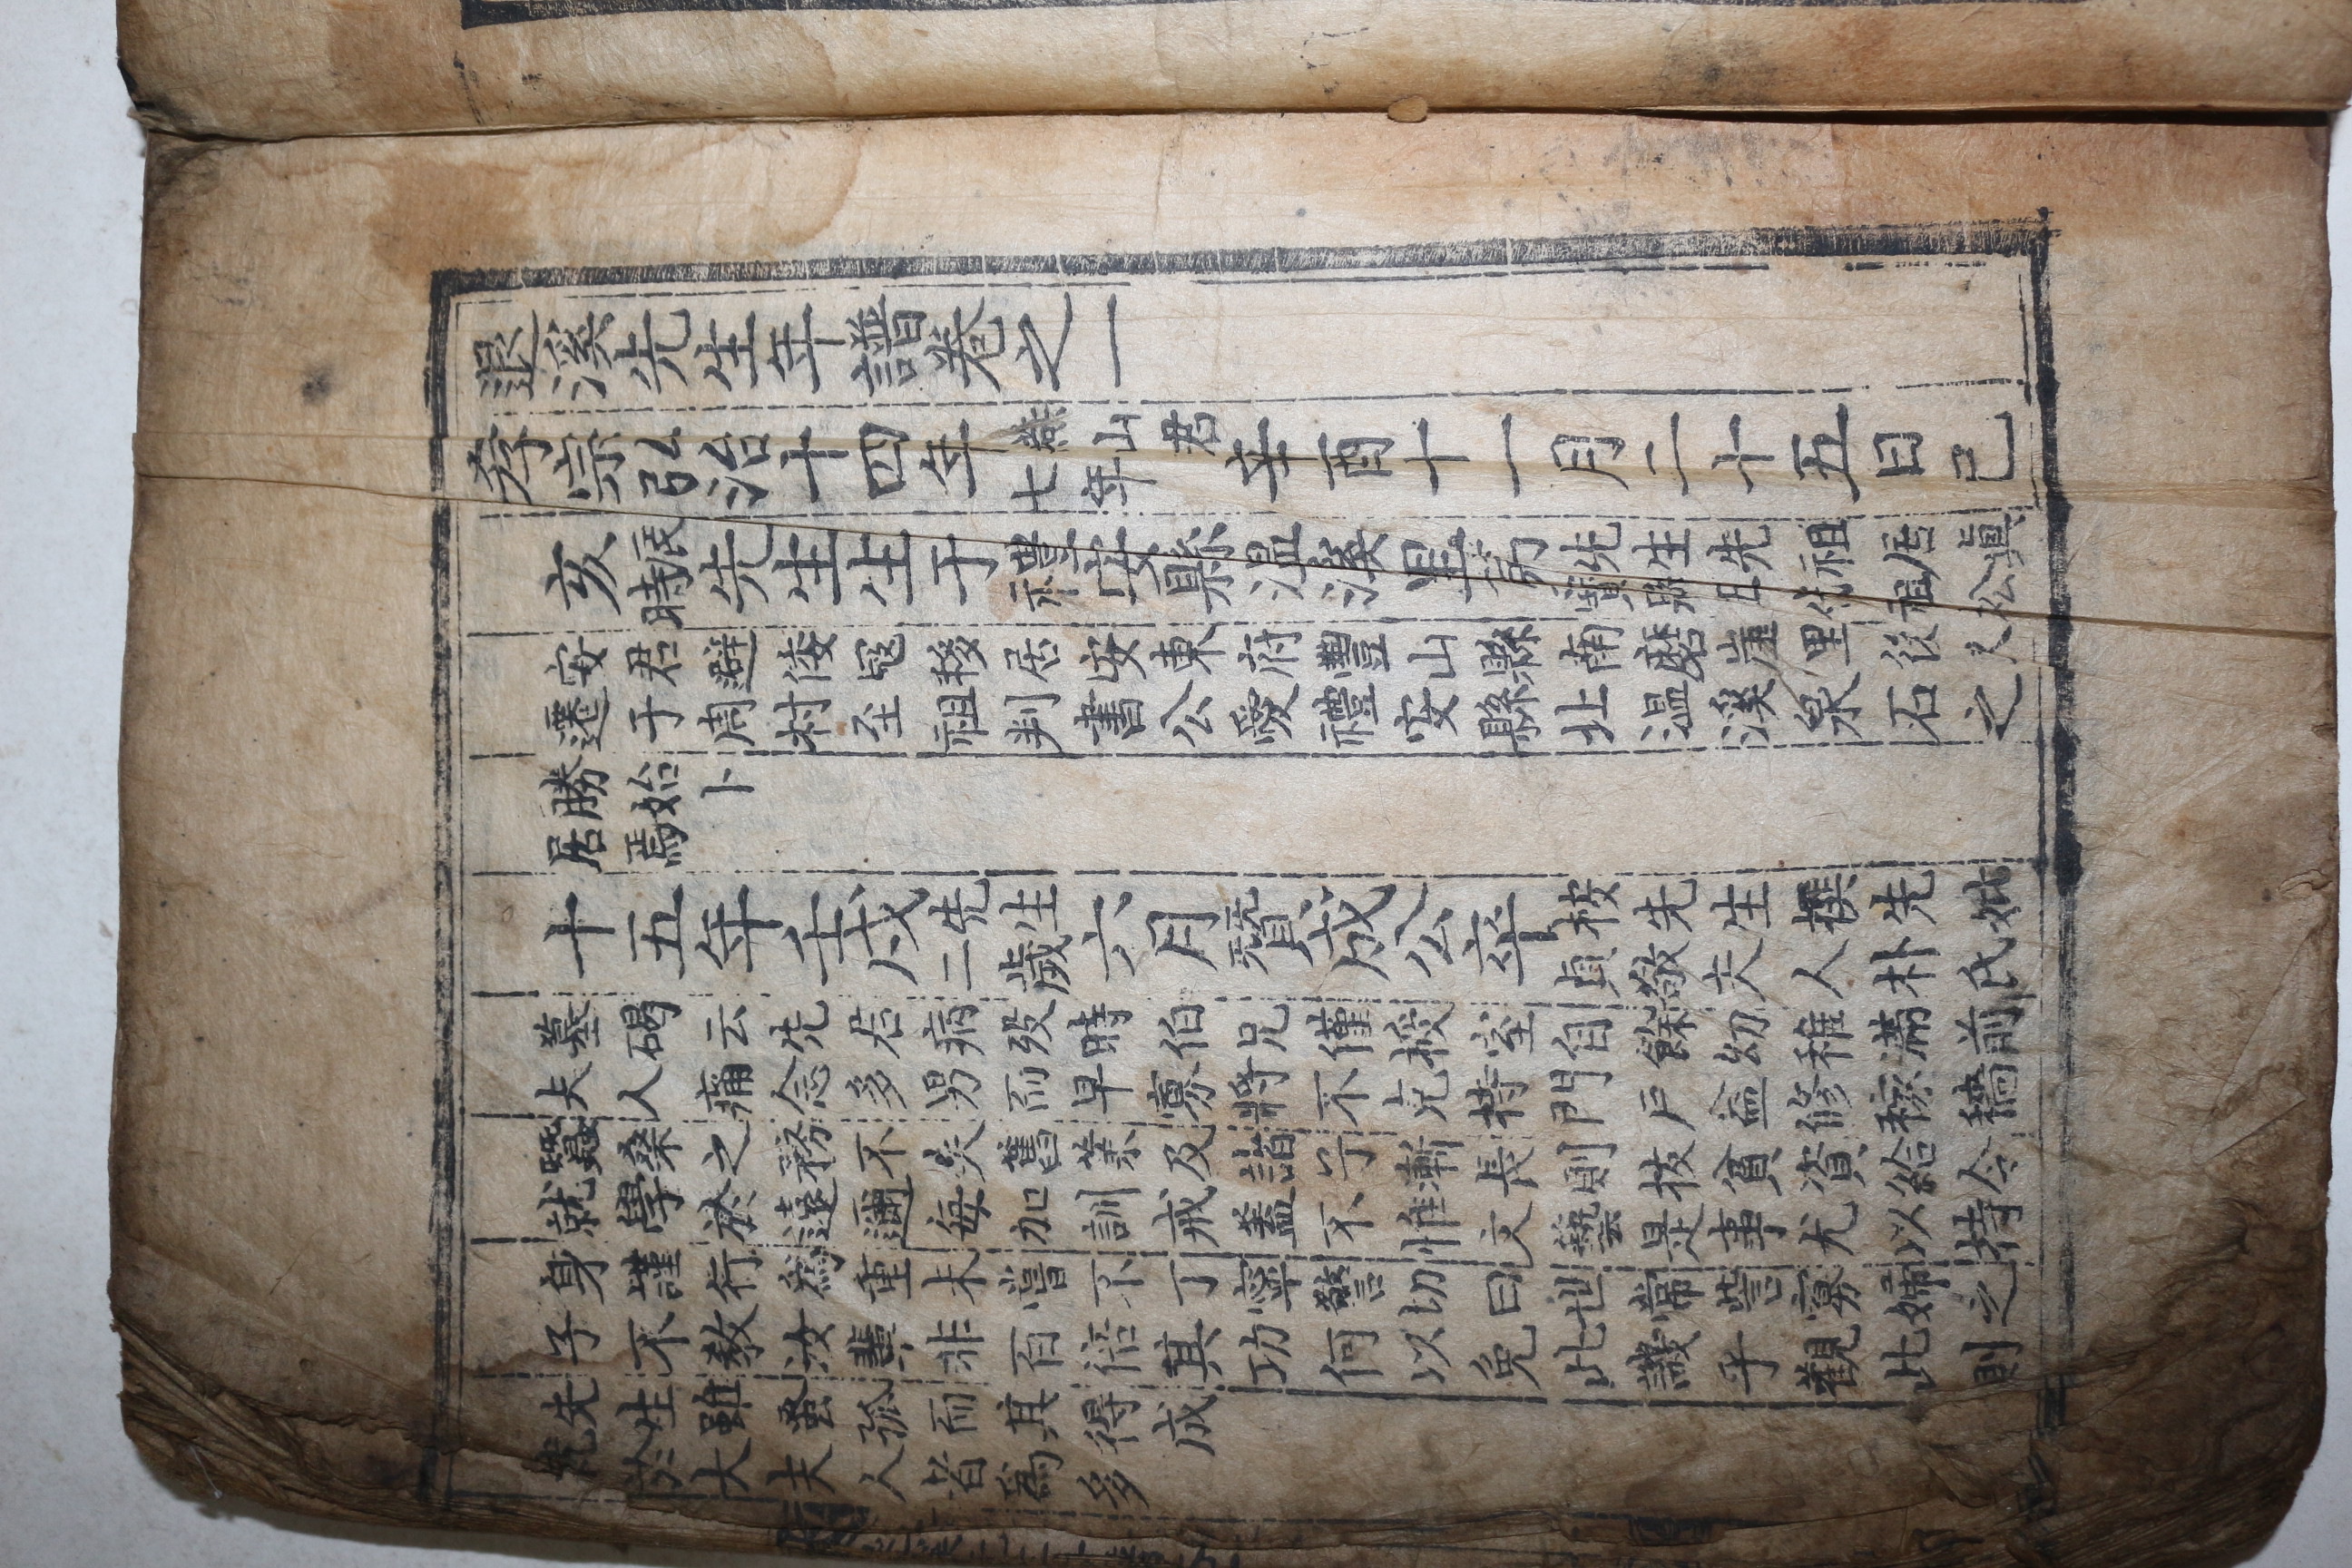 退溪先生年譜卷之一
孝宗弘治十四年
燕山君
七年
辛酉十一月二十五日己
亥
辰
時
先生生于禮安縣温溪里第
先生先祖居眞
寶縣五代祖松
安君避倭冦移居安東府豐山縣南磨崖里後又
遷于周村至祖判書公愛禮安縣北温溪泉石之
勝始卜
居焉
十五年壬戌
先生
二歲
六月贊成公卒
按先生撰先妣
貞敬夫人朴氏
墓碣云先君病殁時伯兄僅授室自餘幼稚滿前
夫人痛念多男而早寡將不克持門戶益修稼穡
蠶桑之務不失舊業及諸子漸長則拔貧資給令
就學於遠邇每加訓戒盖不惟文藝是事尤以持
身謹行爲重未嘗不丁寧警切曰世常訾寡婦之
子不敎汝輩非百倍其功何以免此譏乎觀此則
先生雖蚤孤而其得成
就於大夫人者爲多